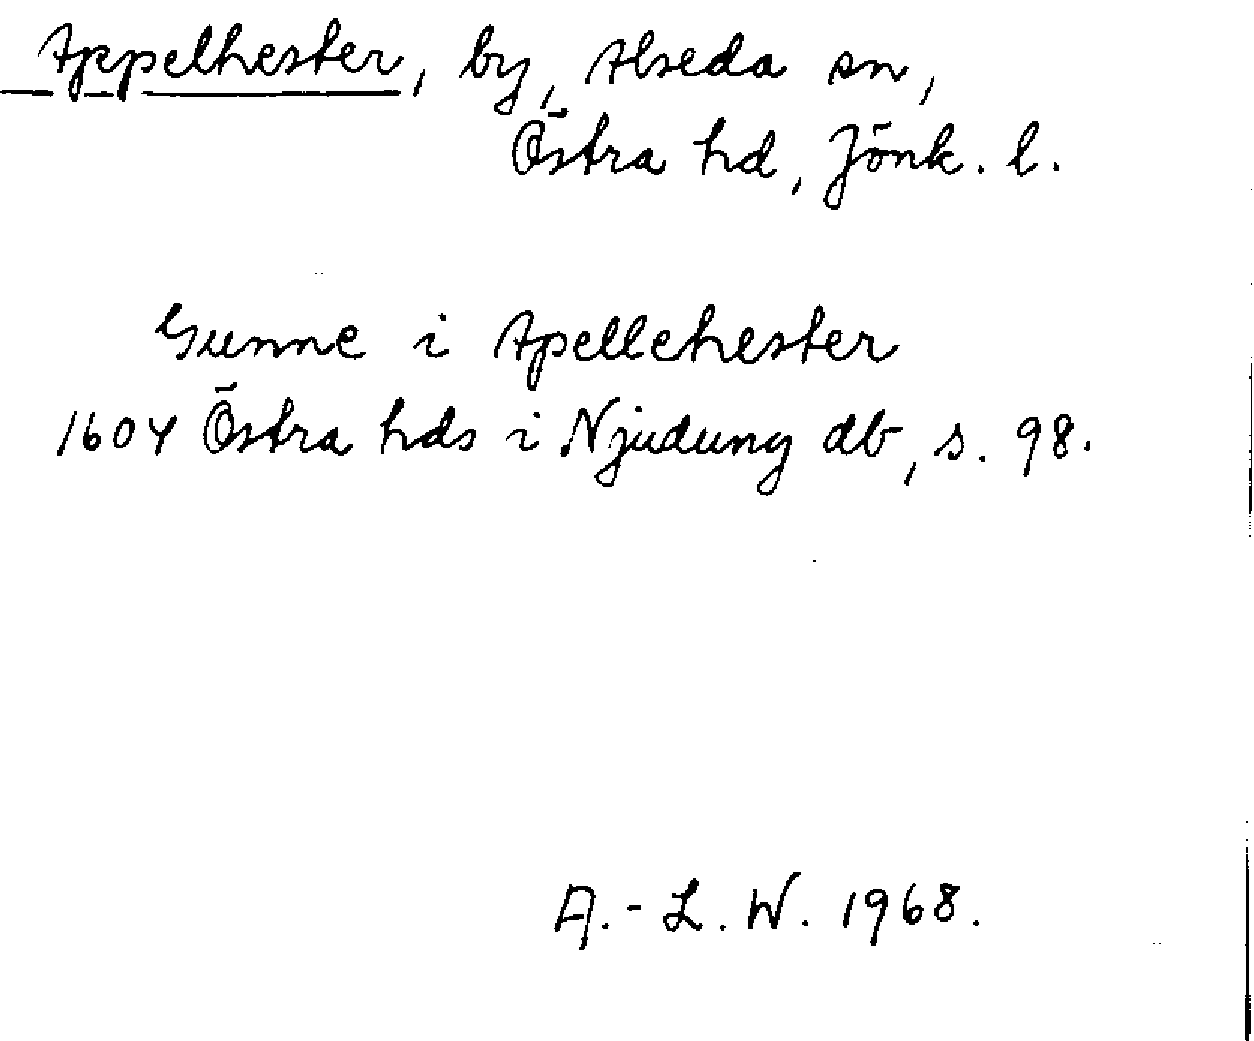 Appelhester, by, Alseda sn,
Östra hd, Jönk. l.
Gunne i Apellehester
1604 Östra hds i Njudung db, s. 98.
A.-L. W. 1968.